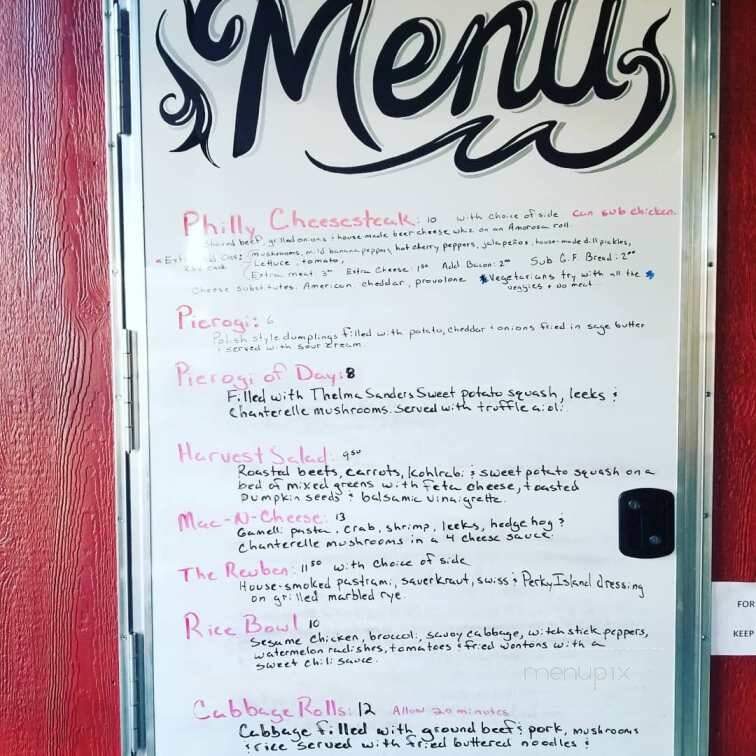 Menu
Philly Cheesesteak: 10 with choice of side can sub chicken
Shaved beef, grilled onions + house made beer cheese whiz on an Amorosa roll
mushrooms, mild banana peppers, hot cherry peppers, jalapeños, house-made dill pickles,
Lettuce, tomato,
Extra meat 3⁰⁰ Extra Cheese: 1⁵⁰ Add Bacon: 2⁰⁰ Sub G.F. Bread: 2⁰⁰
Cheese substitutes: American cheddar, provolone Vegetarians try with all the
veggies + no meat
Pierogi: 6
Polish style dumplings filled with potato, cheddar + onions fried in sage butter
+ served with sour cream.
Pierogi of Day: 8
Filled with Thelma Sanders Sweet potato squash, leeks &
Chanterelle mushrooms. Served with truffle aioli
Harvest Salad: 9⁵⁰
Roasted beets, carrots, Kohlrabi & sweet potato squash on a
bed of mixed greens with feta cheese, toasted
Pumpkin seeds & balsamic vinaigrette.
Mac-N-Cheese: 13
Gamelli pasta, crab, shrimp, leeks, hedgehog &
Chanterelle mushrooms in a 4 cheese sauce.
The Reuben: 11⁵⁰ with choice of side
House-smoked pastrami, sauerkraut, swiss & Perky Island dressing
on grilled marbled rye.
Rice Bowl 10
Sesame chicken, broccoli, savoy cabbage, witch stick peppers,
watermelon radishes, tomatoes + fried wontons with a
sweet chili sauce.
menupix
Cabbage Rolls: 12 Allow 20 minutes
Cabbage filled with ground beef & pork, mushrooms
& rice served with fried buttered noodles &
FOR
KEEP